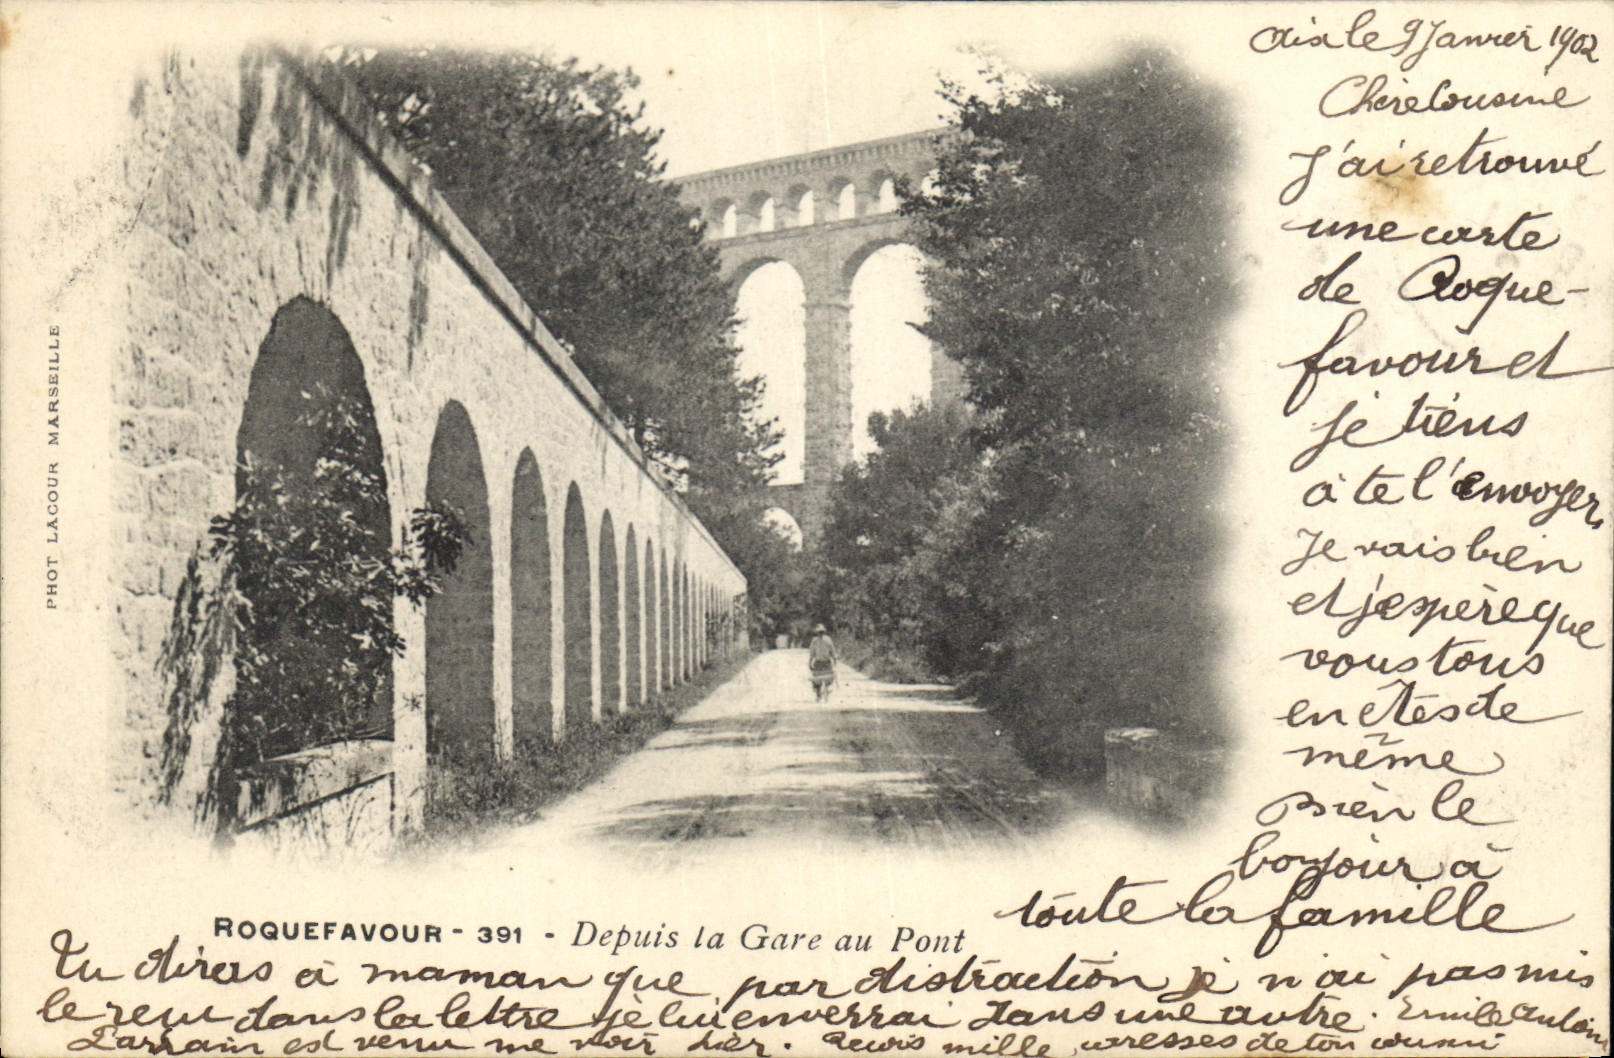 Aix le 9 Janvier 1902
Chère Cousine
J'ai retrouvé
une carte
de Roque-
favour et
je tiens
à te l'envoyer,
Je vais bien
et j'espère que
vous tous
en êtes de
même
Bien le
bonjour à
toute la famille
PHOT LACOUR MARSEILLE
ROQUEFAVOUR - 391 - Depuis la Gare au Pont
Tu diras à maman que par distraction je n'ai pas mis
le reçu dans la lettre je lui enverrai dans une autre. Emile
est venu me voir hier. Reçois mille caresses de ton cousin